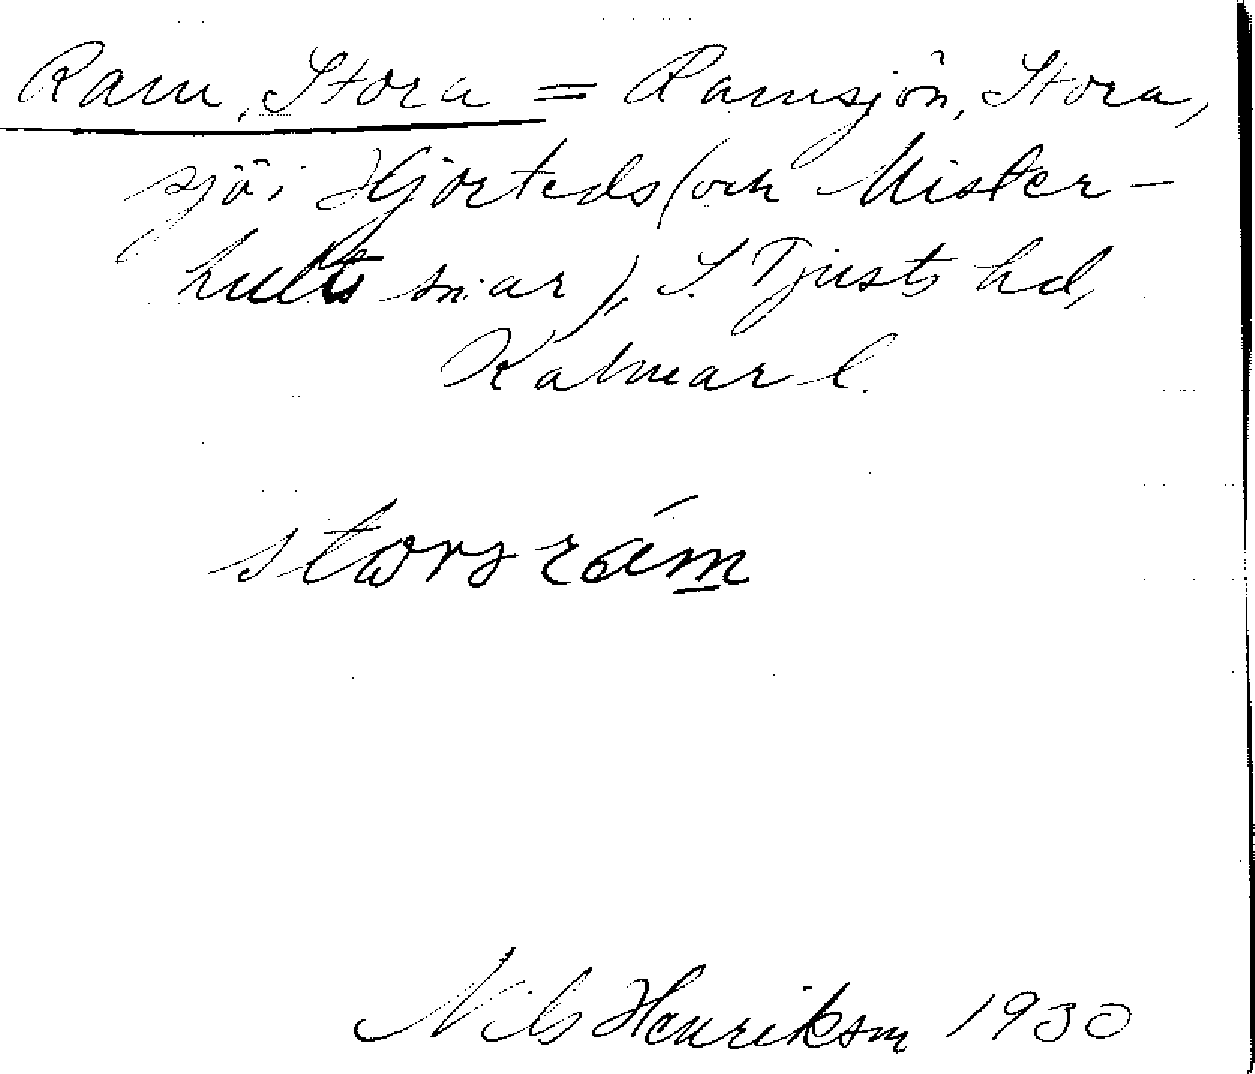 Ram, Stora = Ramsjön, Stora,
sjö i Hjorteds (och Mister-
hults snar), S. Tjusts hd,
Kalmar l.
Nils Henrikson 1930